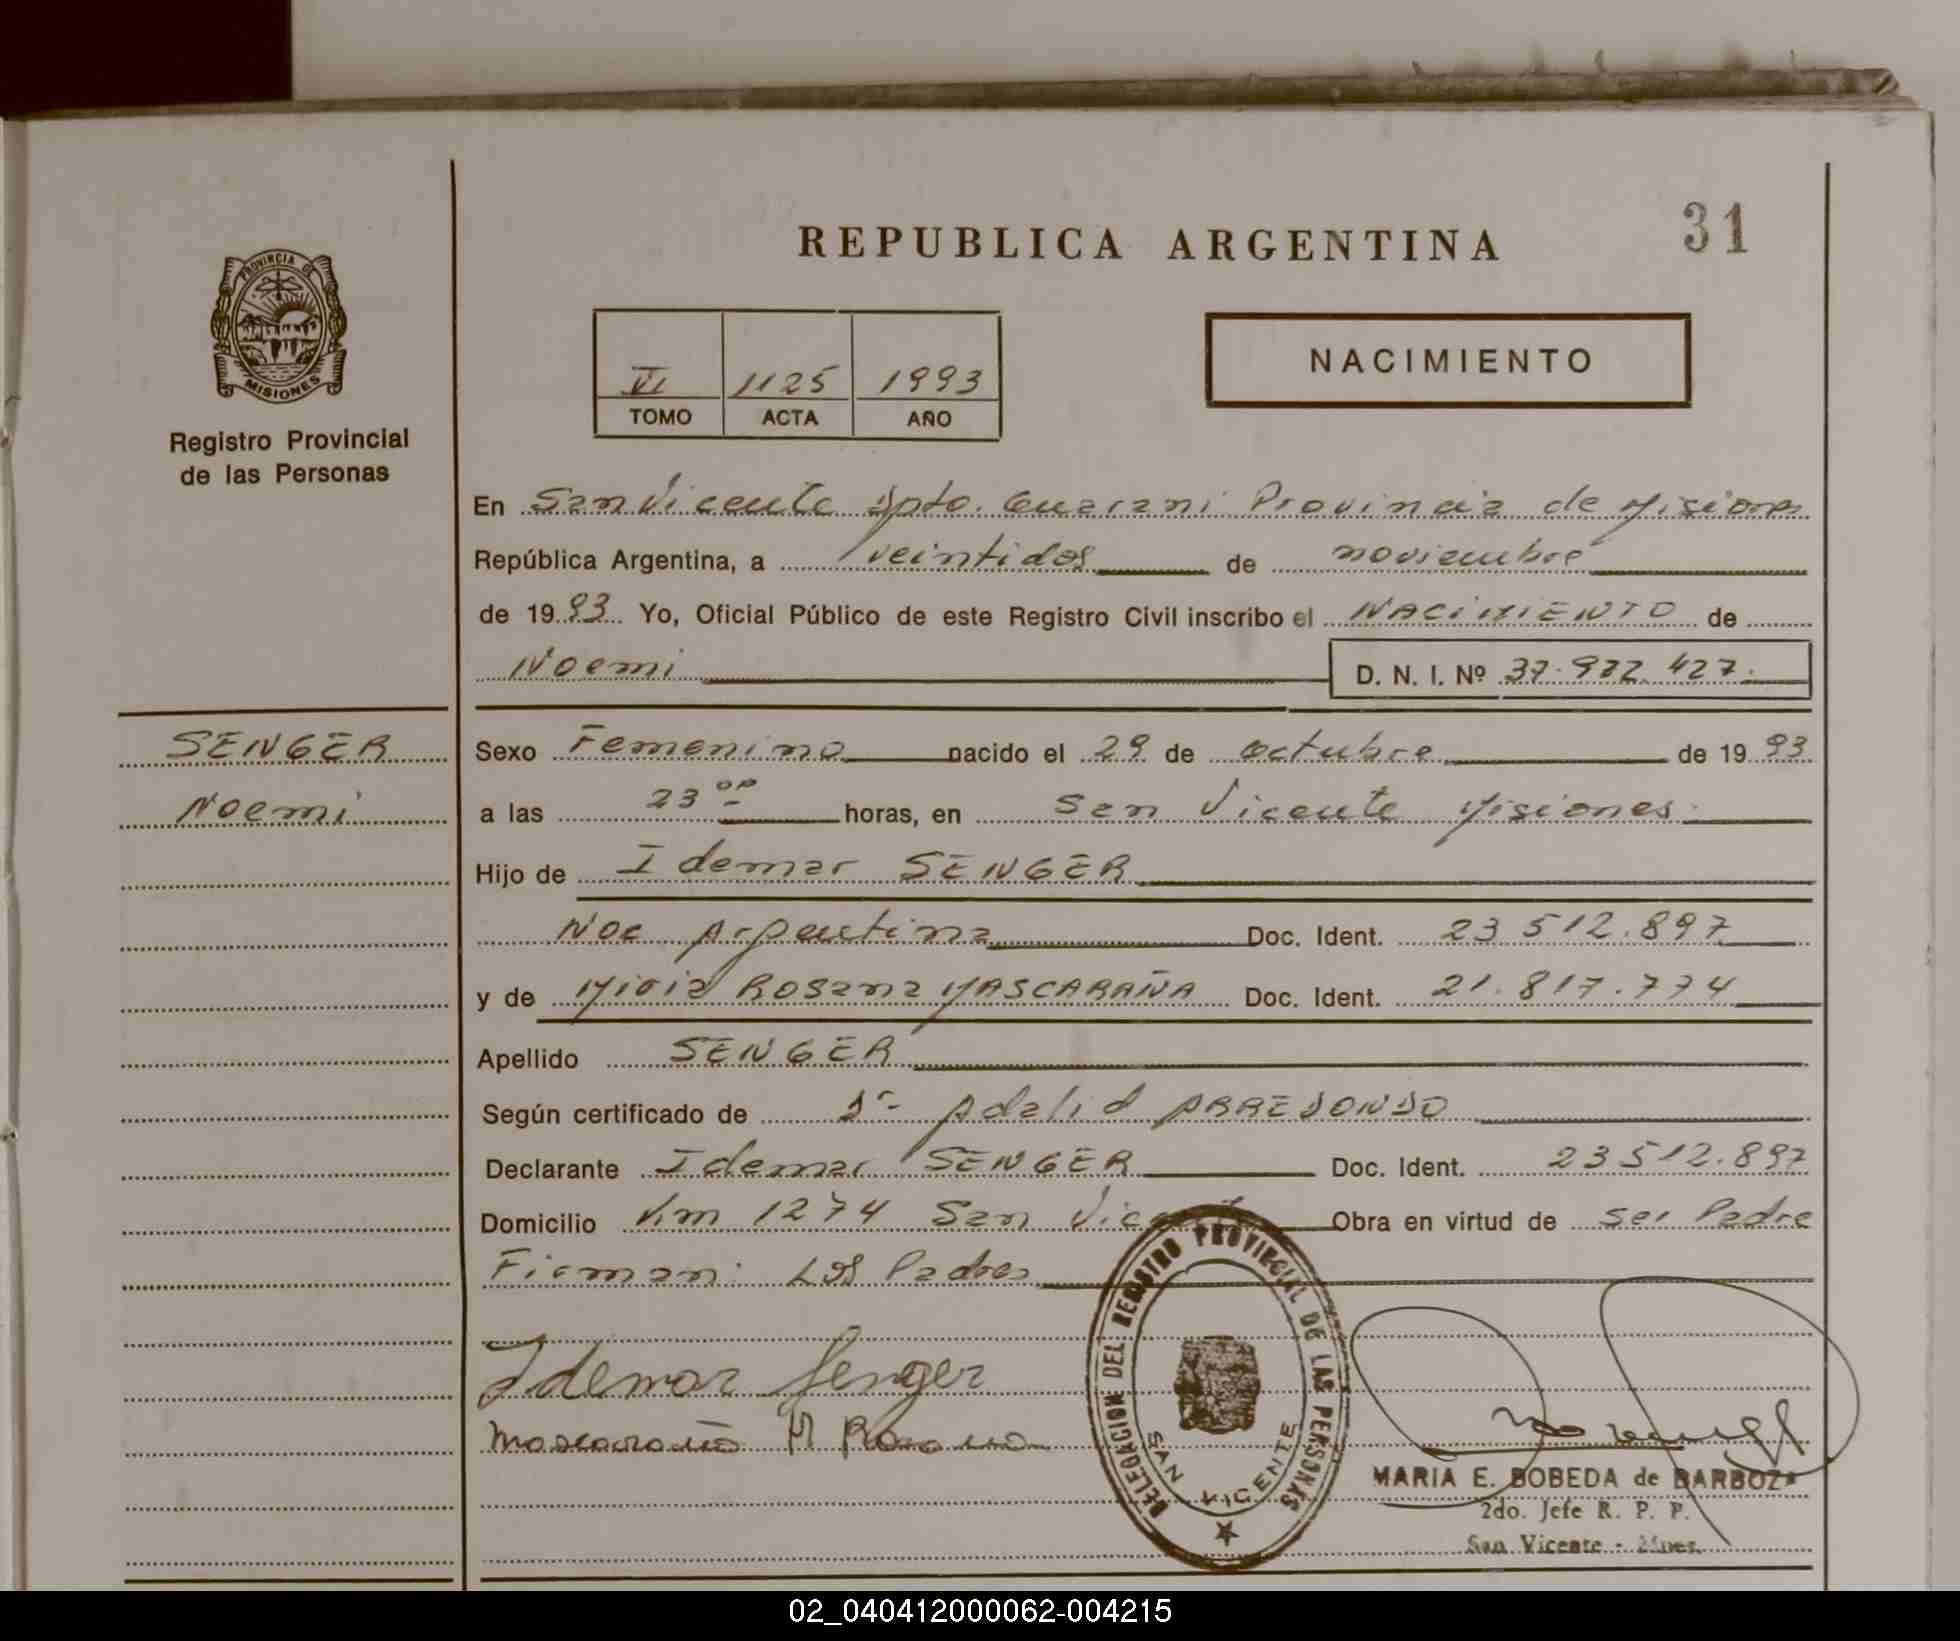 REPUBLICA ARGENTINA
31
PROVINCIA DE
MISIONES
Registro Provincial
de las Personas
VI 1125 1993
TOMO ACTA AÑO
NACIMIENTO
En San Vicente Dpto. Guarani Provincia de Misiones
República Argentina, a veintidos de noviembre
de 1993 Yo, Oficial Público de este Registro Civil inscribo el NACIMIENTO de
Noemi D. N. I. Nº 37.972.427.
SENGER
Noemi
Sexo Femenino nacido el 29 de octubre de 1993
a las 23 00 horas, en San Vicente Misiones
Hijo de Idemar SENGER
Nac Argentina Doc. Ident. 23 512.897
y de Miria Rosana MASCARAÑA Doc. Ident. 21.817.774
Apellido SENGER
Según certificado de Dr Adalid ARREDONDO
Declarante Idemar SENGER Doc. Ident. 23 512.897
Domicilio Km 1274 San Vicente Obra en virtud de ser Padre
Firman: Los Padres
Idemar Senger
Mascaraña M Rosana
DELEGACION DEL REGISTRO PROVINCIAL DE LAS PERSONAS
SAN VICENTE
MARIA E. BOBEDA de BARBOZA
2do. Jefe R. P. P.
San Vicente - Mnes.
02_040412000062-004215